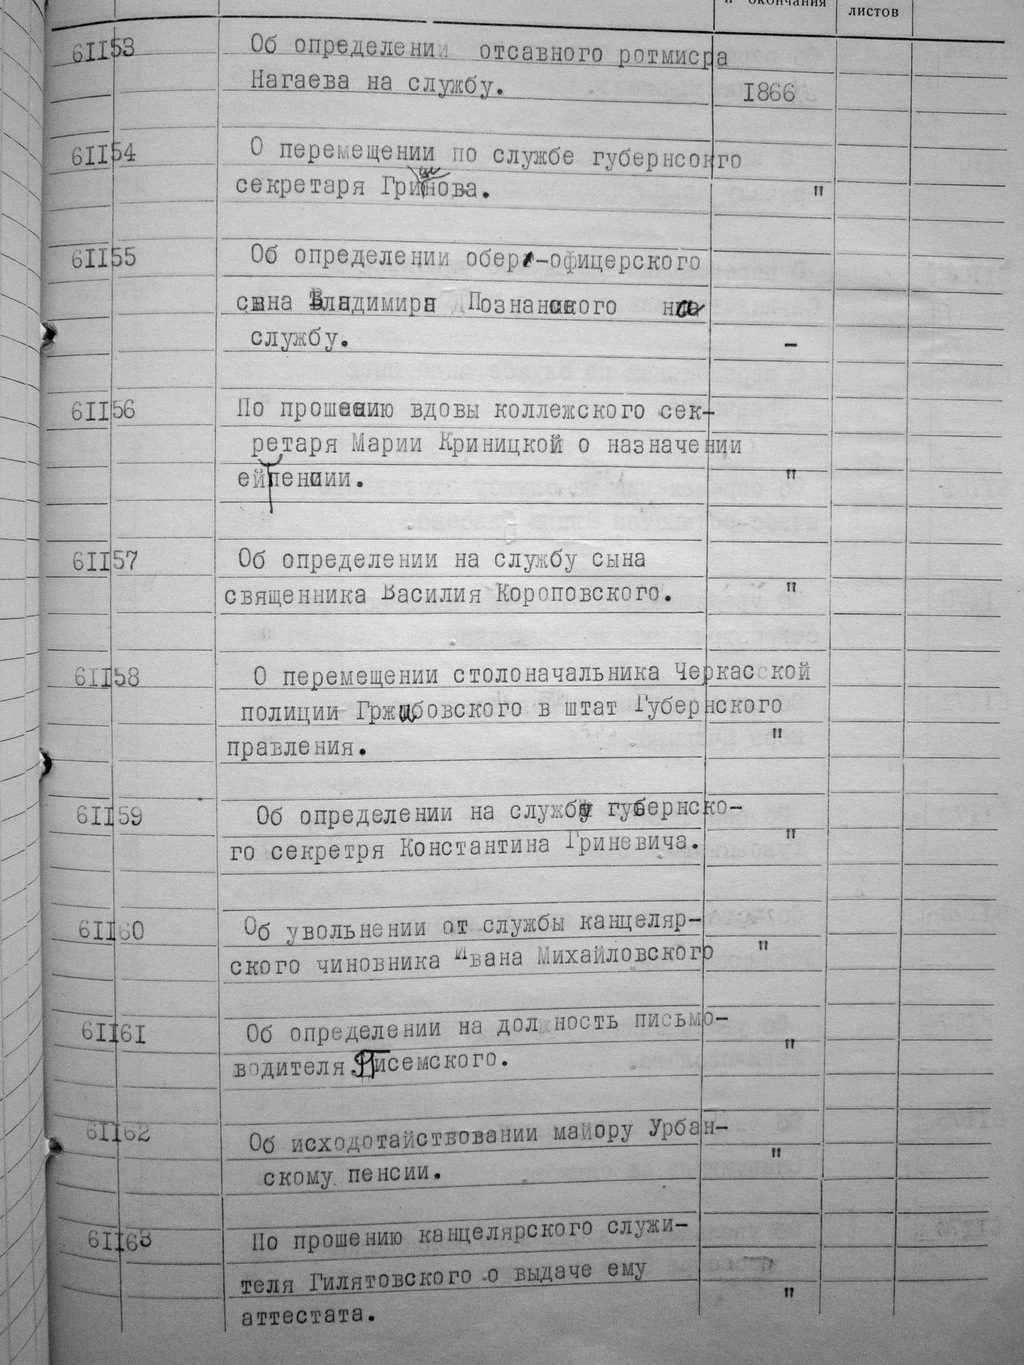 и окончания листов
61153 Об определении отсавного ротмисра
Нагаева на службу. 1866
61154 О перемещении по службе губернсокго
секретаря Гринова. "
61155 Об определении обер-офицерского
сына Владимира Познанского на
службу. -
61156 По прошению вдовы коллежского сек-
ретаря Марии Криницкой о назначении
ей пенсии. "
61157 Об определении на службу сына
священника Василия Короповского. "
61158 О перемещении столоначальника Черкасской
полиции Гржибовского в штат Губернского
правления. "
61159 Об определении на службу губернско-
го секретря Константина Гриневича. "
61160 Об увольнении от службы канцеляр-
ского чиновника Ивана Михайловского "
61161 Об определении на должность письмо-
водителя Писемского. "
61162 Об исходотайствовании майору Урбан-
скому пенсии. "
61163 По прошению канцелярского служи-
теля Гилятовского о выдаче ему
аттестата. "